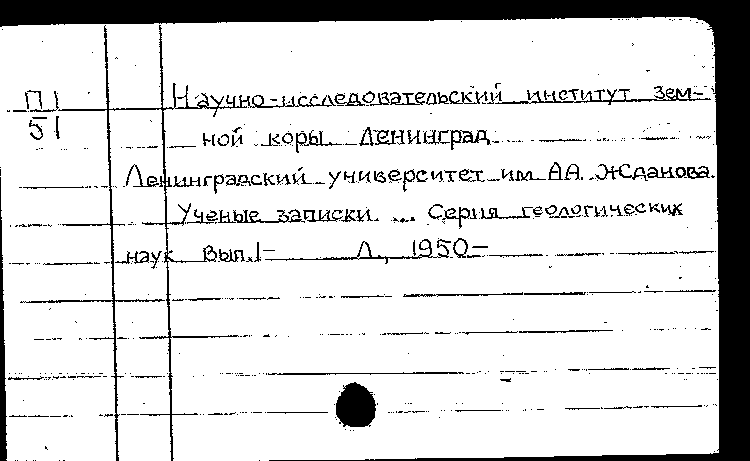 П1
51
Научно-исследовательский институт зем-
ной коры. Ленинград
Ленинградский университет им А.А. Жданова.
Ученые записки. ... Серия геологических
наук Вып.1- Л., 1950-